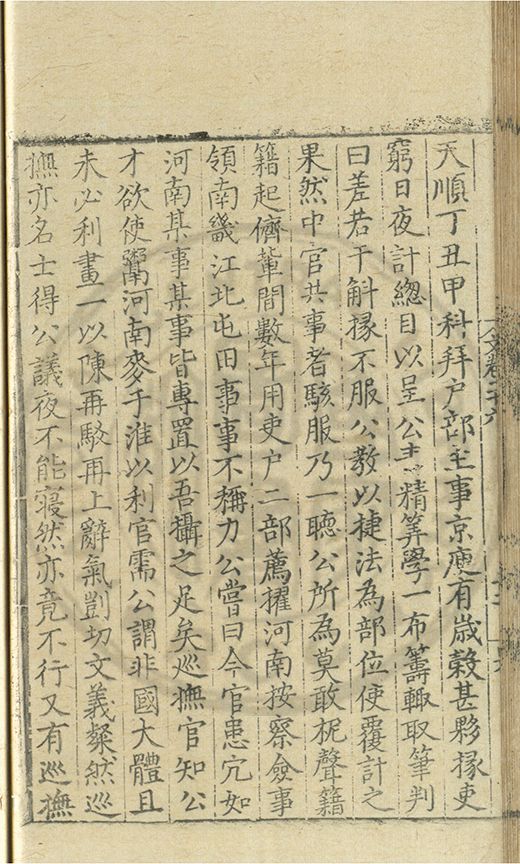 天順丁丑甲科拜户部主事京庾有歲榖甚夥掾吏
窮日夜計緫目以呈公主精筭學一布籌輙取筆判
曰差若干斛掾不服公教以捷法為部位使覆計之
果然中官共事者駭服乃一聽公所為莫敢柅聲籍
籍起儕軰間數年用吏户二部薦擢河南按察僉事
領南畿江北屯田事事不稱力公嘗曰今官患冗如
河南某事某事皆專置以吾攝之足矣巡撫官知公
才欲使鬻河南麥于淮以利官需公謂非國大體且
未必利畫一以陳再駁再上辭氣剴切文義粲然巡
撫亦名士得公議夜不能寢然亦竟不行又有巡撫